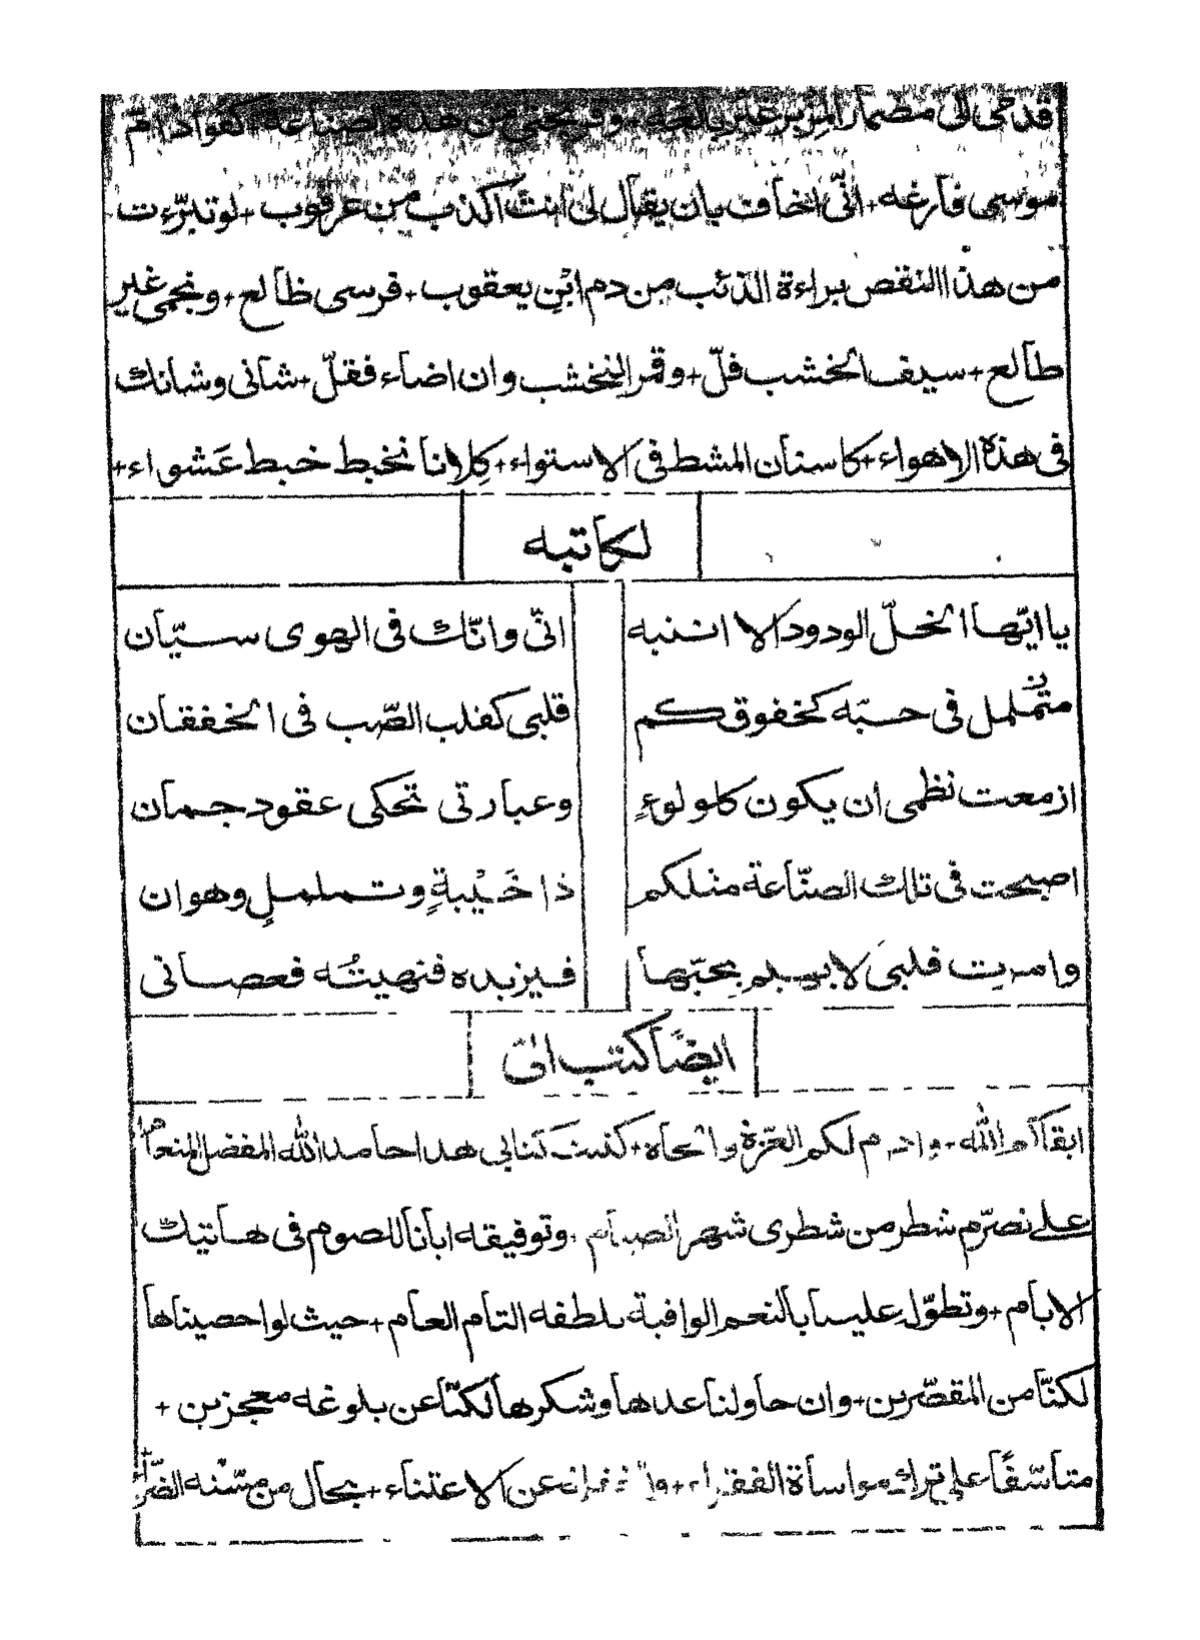 قدحى الى مضمار المؤبر غير بالغه + وقر بختي من هذه الصناعة كفواد ام
موسى فارغه + انّى اخاف بان يقال لى انت اكذب من عرقوب + لو تبرّءت
من هذا النقص براءة الذئب من دم ابْن يعقوب + فرسى ظالع + ونجمى غير
طالع + سيف الخشب فلّ + وقمر النخشب وان اضاء فقلّ + شانى وشانك
فى هذه الاهواء + كاسنان المشط فى الاستواء + كِلانا نخبط خبط عَشواء +
لكاتبه
يا ايّها الخلّ الودود الا انتبه
انّى وانّك فى الهوى سيّان
متململ فى حبّه كخفوقكم
قلبى كقلب الصّب فى الخفقان
ازمعت نظمى ان يكون كلولوءٍ
وعبارتى تحكى عقود جمان
اصبحت فى تلك الصنّاعة مثلكم
ذا خَيْبةٍ وتململٍ وهوان
وامرت قلبى لا يهلم بحبّها
فيزيده فنهيتُه فعصانى
ايضًا كتب الىّ
ابقاكم الله + وادم لكم العزّة والجاه + كتبت كتابى هذا حامدا لله المفضل المنعام
على تصرّم شطر من شطرى شهر الصيام + وتوفيقه ايانا للصوم فى هاتيك
الايام + وتطوّله علينا بالنعم الوافية بلطفه التام العام + حيث لو احصيناها
لكنّا من المقصّرين + وان حاولنا عدها وشكرها لكنّا عن بلوغه معجزين +
متاسّفًا على ترك مواساة الفقراء + وا عن الاعتناء + بحال من مسّته الضّراء